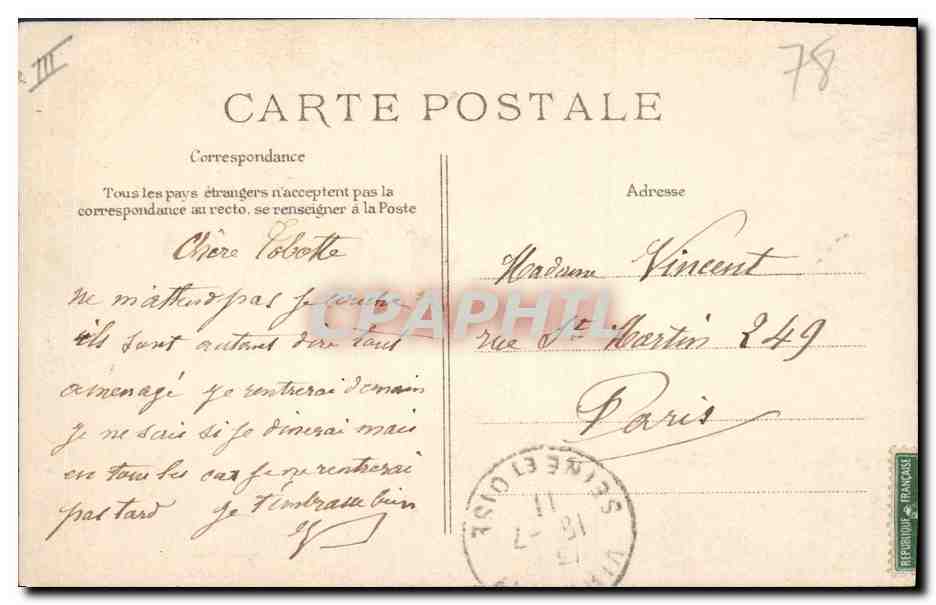 III
78
CARTE POSTALE
Correspondance
Tous les pays étrangers n'acceptent pas la
correspondance au recto, se renseigner à la Poste
Adresse
Chère
ne m'attend pas je couche
ils sont autant dire tous
aménagé je rentrerai demain
je ne sais si je dinerai mais
en tous les cas je ne rentrerai
pas tard je t'embrasse bien
V
Madame Vincent
rue St Martin 249
Paris
CPAPHIL
SEINE ET OISE
REPUBLIQUE FRANÇAISE